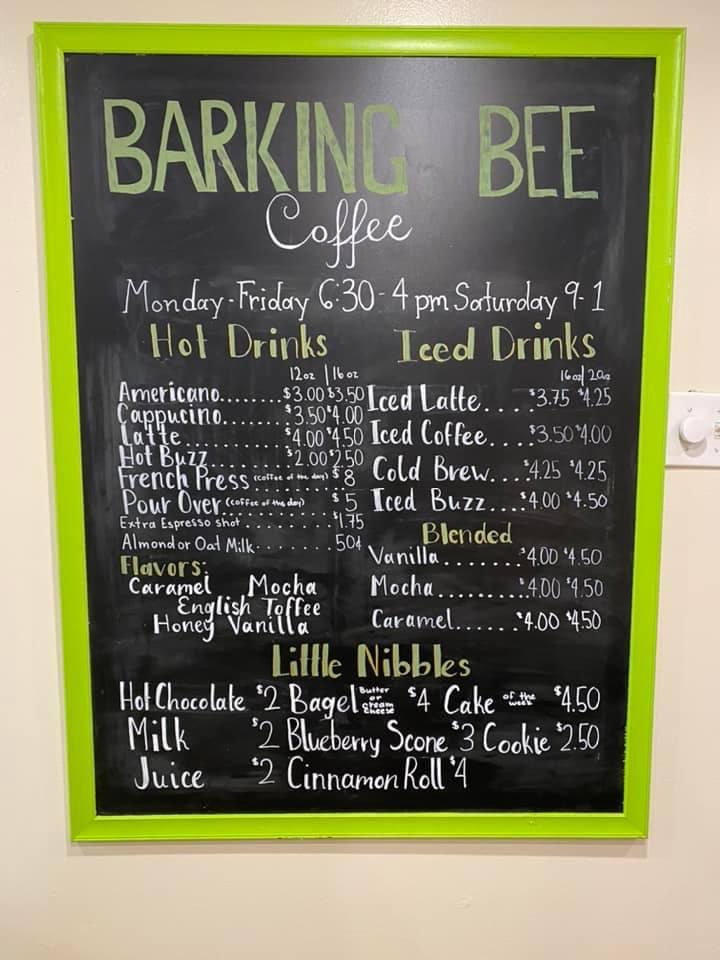 BARKING BEE
Coffee
Monday-Friday 6:30-4 pm Saturday 9-1
Hot Drinks
12oz | 16 oz
Americano........$3.00 $3.50
Cappucino........$3.50 $4.00
Latte............$4.00 $4.50
Hot Buzz.........$2.00 $2.50
French Press (coffee of the day) $8
Pour Over (coffee of the day) $5
Extra Espresso shot............$1.75
Almond or Oat Milk.......50¢
Flavors:
Caramel Mocha
English Toffee
Honey Vanilla
Iced Drinks
16oz| 20oz
Iced Latte....$3.75 $4.25
Iced Coffee....$3.50 $4.00
Cold Brew....$4.25 $4.25
Iced Buzz....$4.00 $4.50
Blended
Vanilla.......$4.00 $4.50
Mocha.........$4.00 $4.50
Caramel......$4.00 $4.50
Little Nibbles
Hot Chocolate $2 Bagel Butter or cream cheese $4 Cake of the week $4.50
Milk $2 Blueberry Scone $3 Cookie $2.50
Juice $2 Cinnamon Roll $4